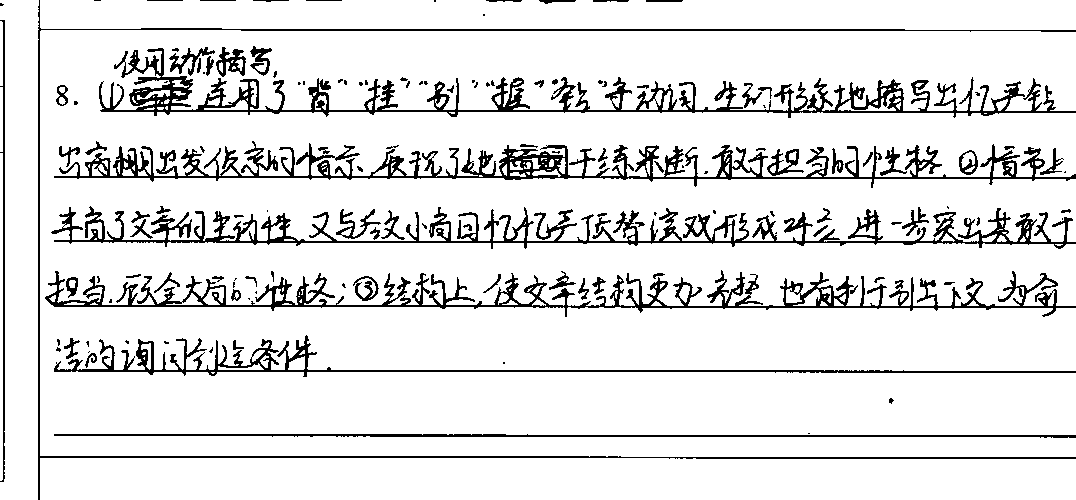 使用动作描写,
8. ①连用了“背”“挂”“别”“握”“钻”等动词,生动形象地描写出忆严钻
出窝棚出发侦察的情景,展现了她干练果断、敢于担当的性格。②情节上,
丰富了文章的生动性,又与后文小高回忆忆严顶替演戏形成呼应,进一步突出其敢于
担当、顾全大局的性格;③结构上,使文章结构更加完整,也有利于引出下文,为俞
洁的询问创造条件.